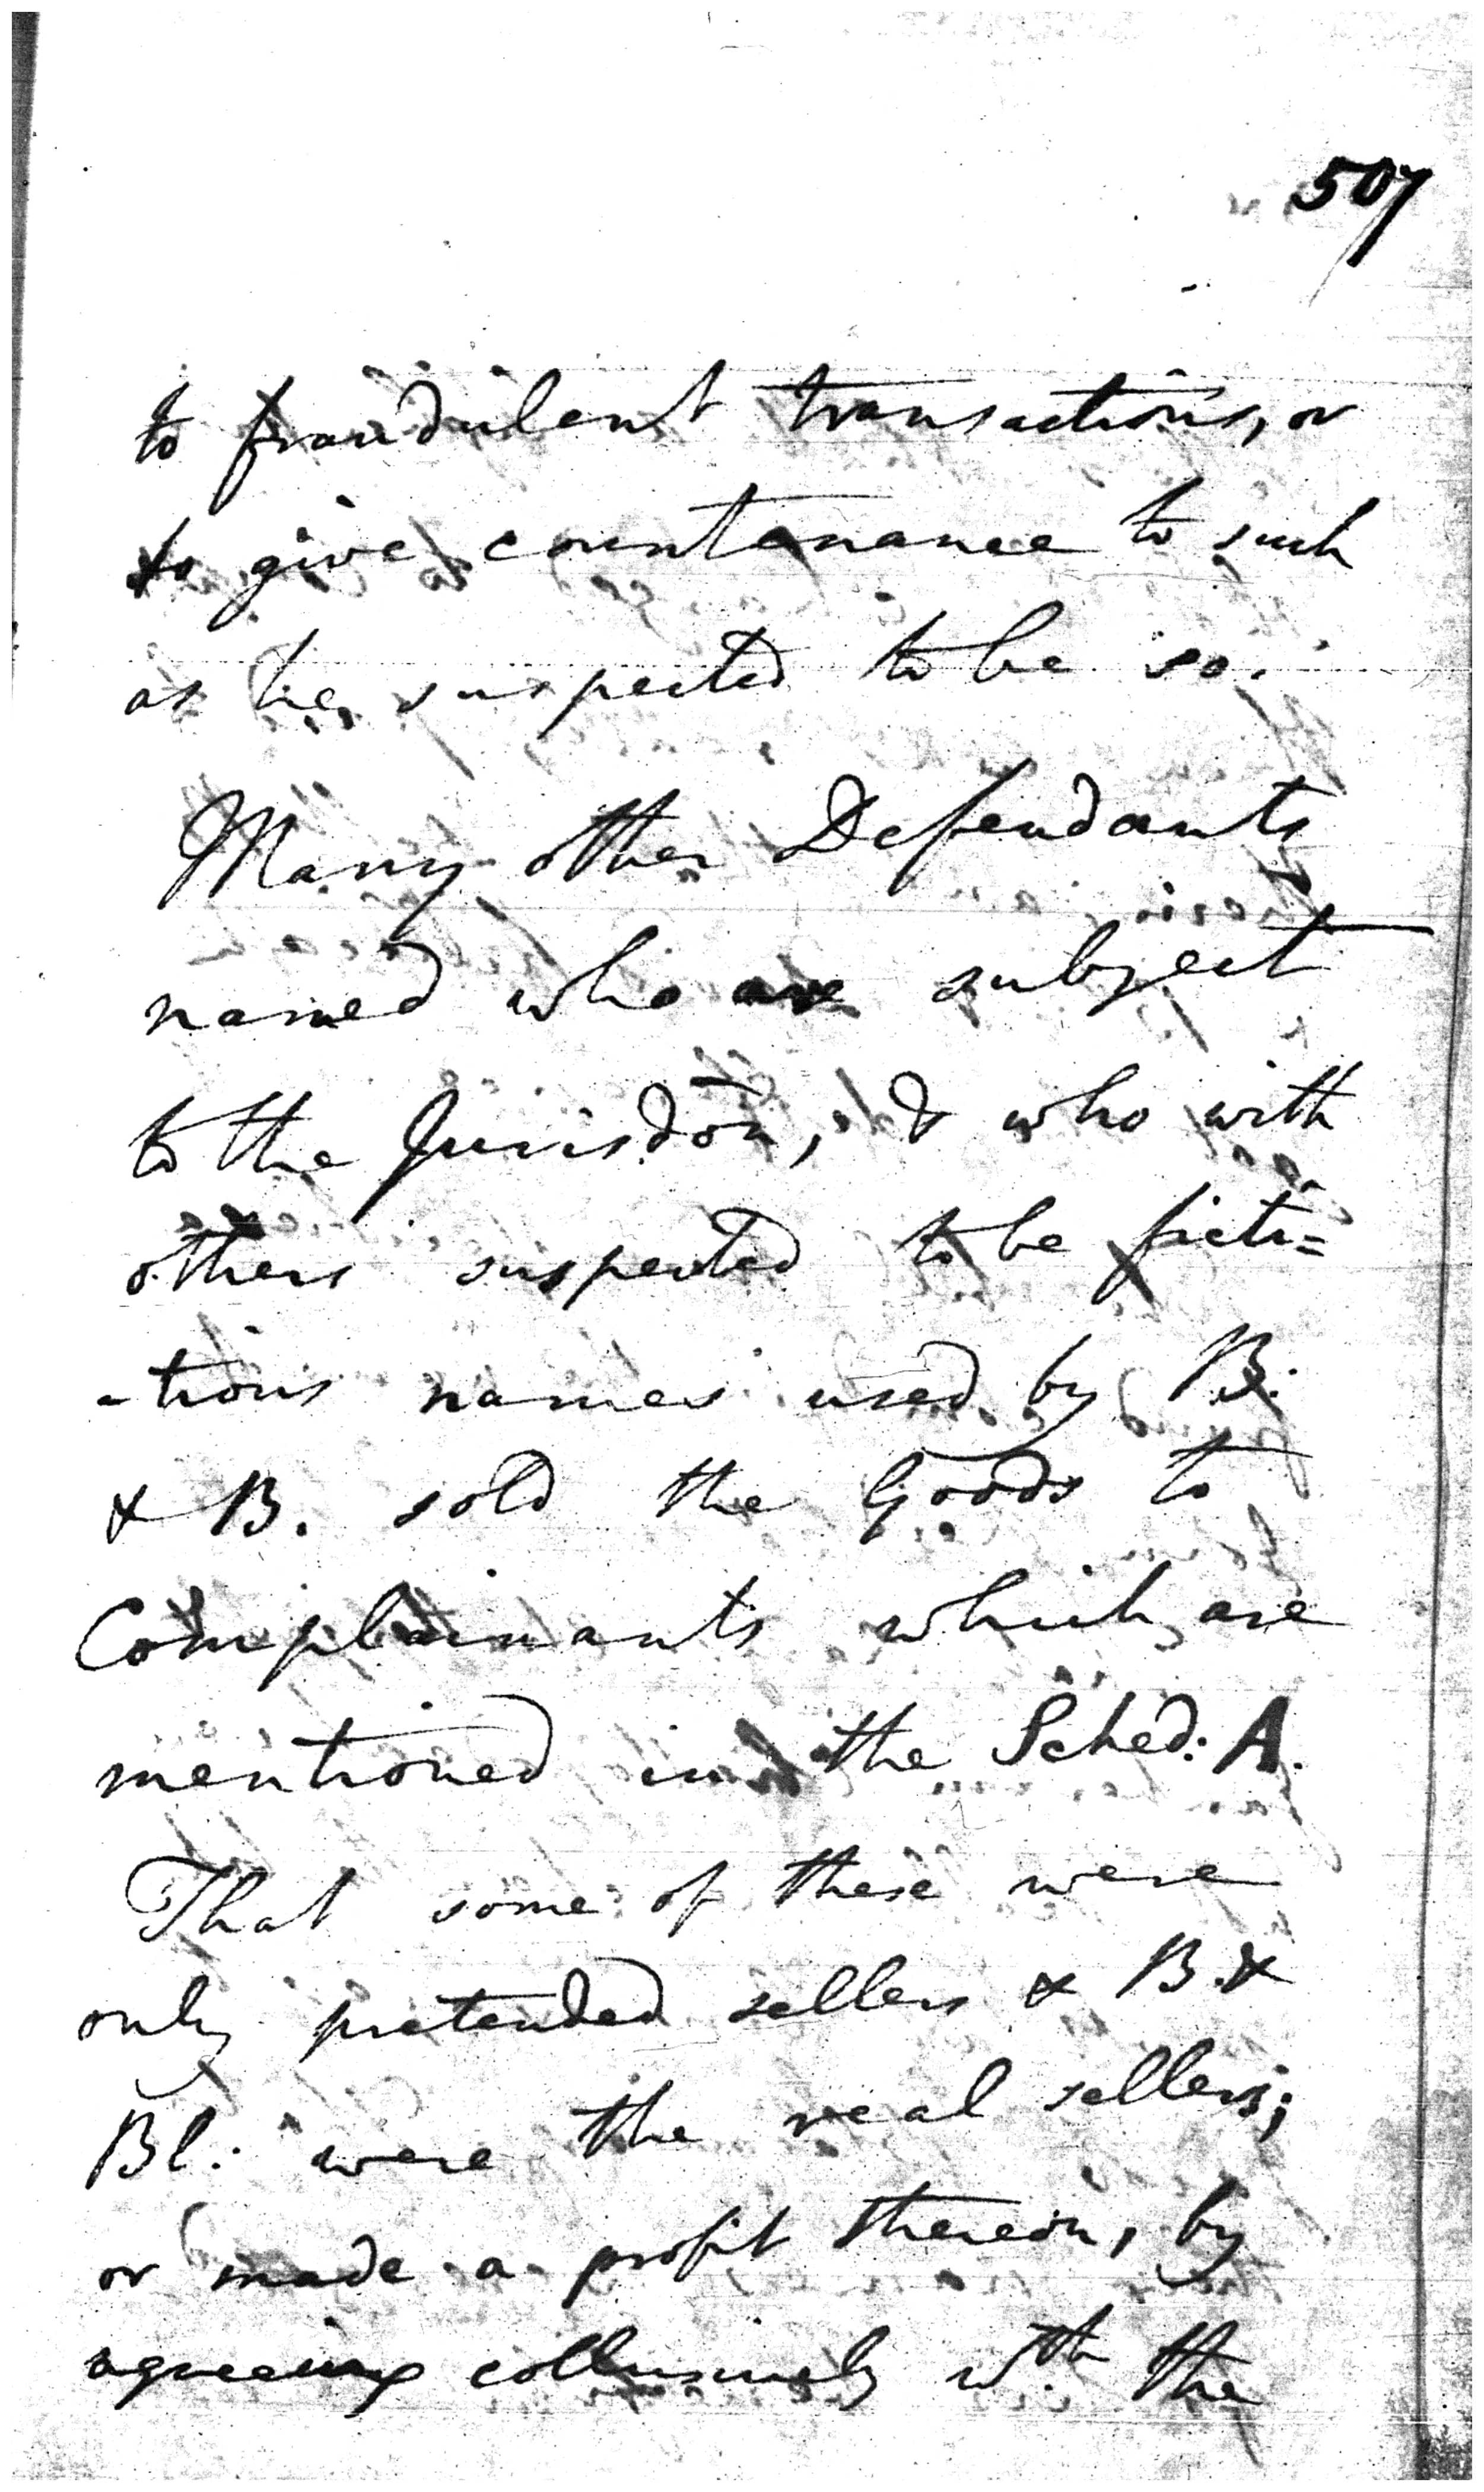 507
to fraudulent transactions, or
to give countenance to such
as he suspected to be so.
Many other Defendants
named who are subject
to the Jurisdon, & who with
others suspected to be ficti=
-tious names used by B.
& B. sold the Goods to
Complainants which are
mentioned in the Sched: A.
That some of these were
only pretended sellers & B. &
Bl: were the real sellers;
or made a profit thereon, by
agreeing collusively wth. the